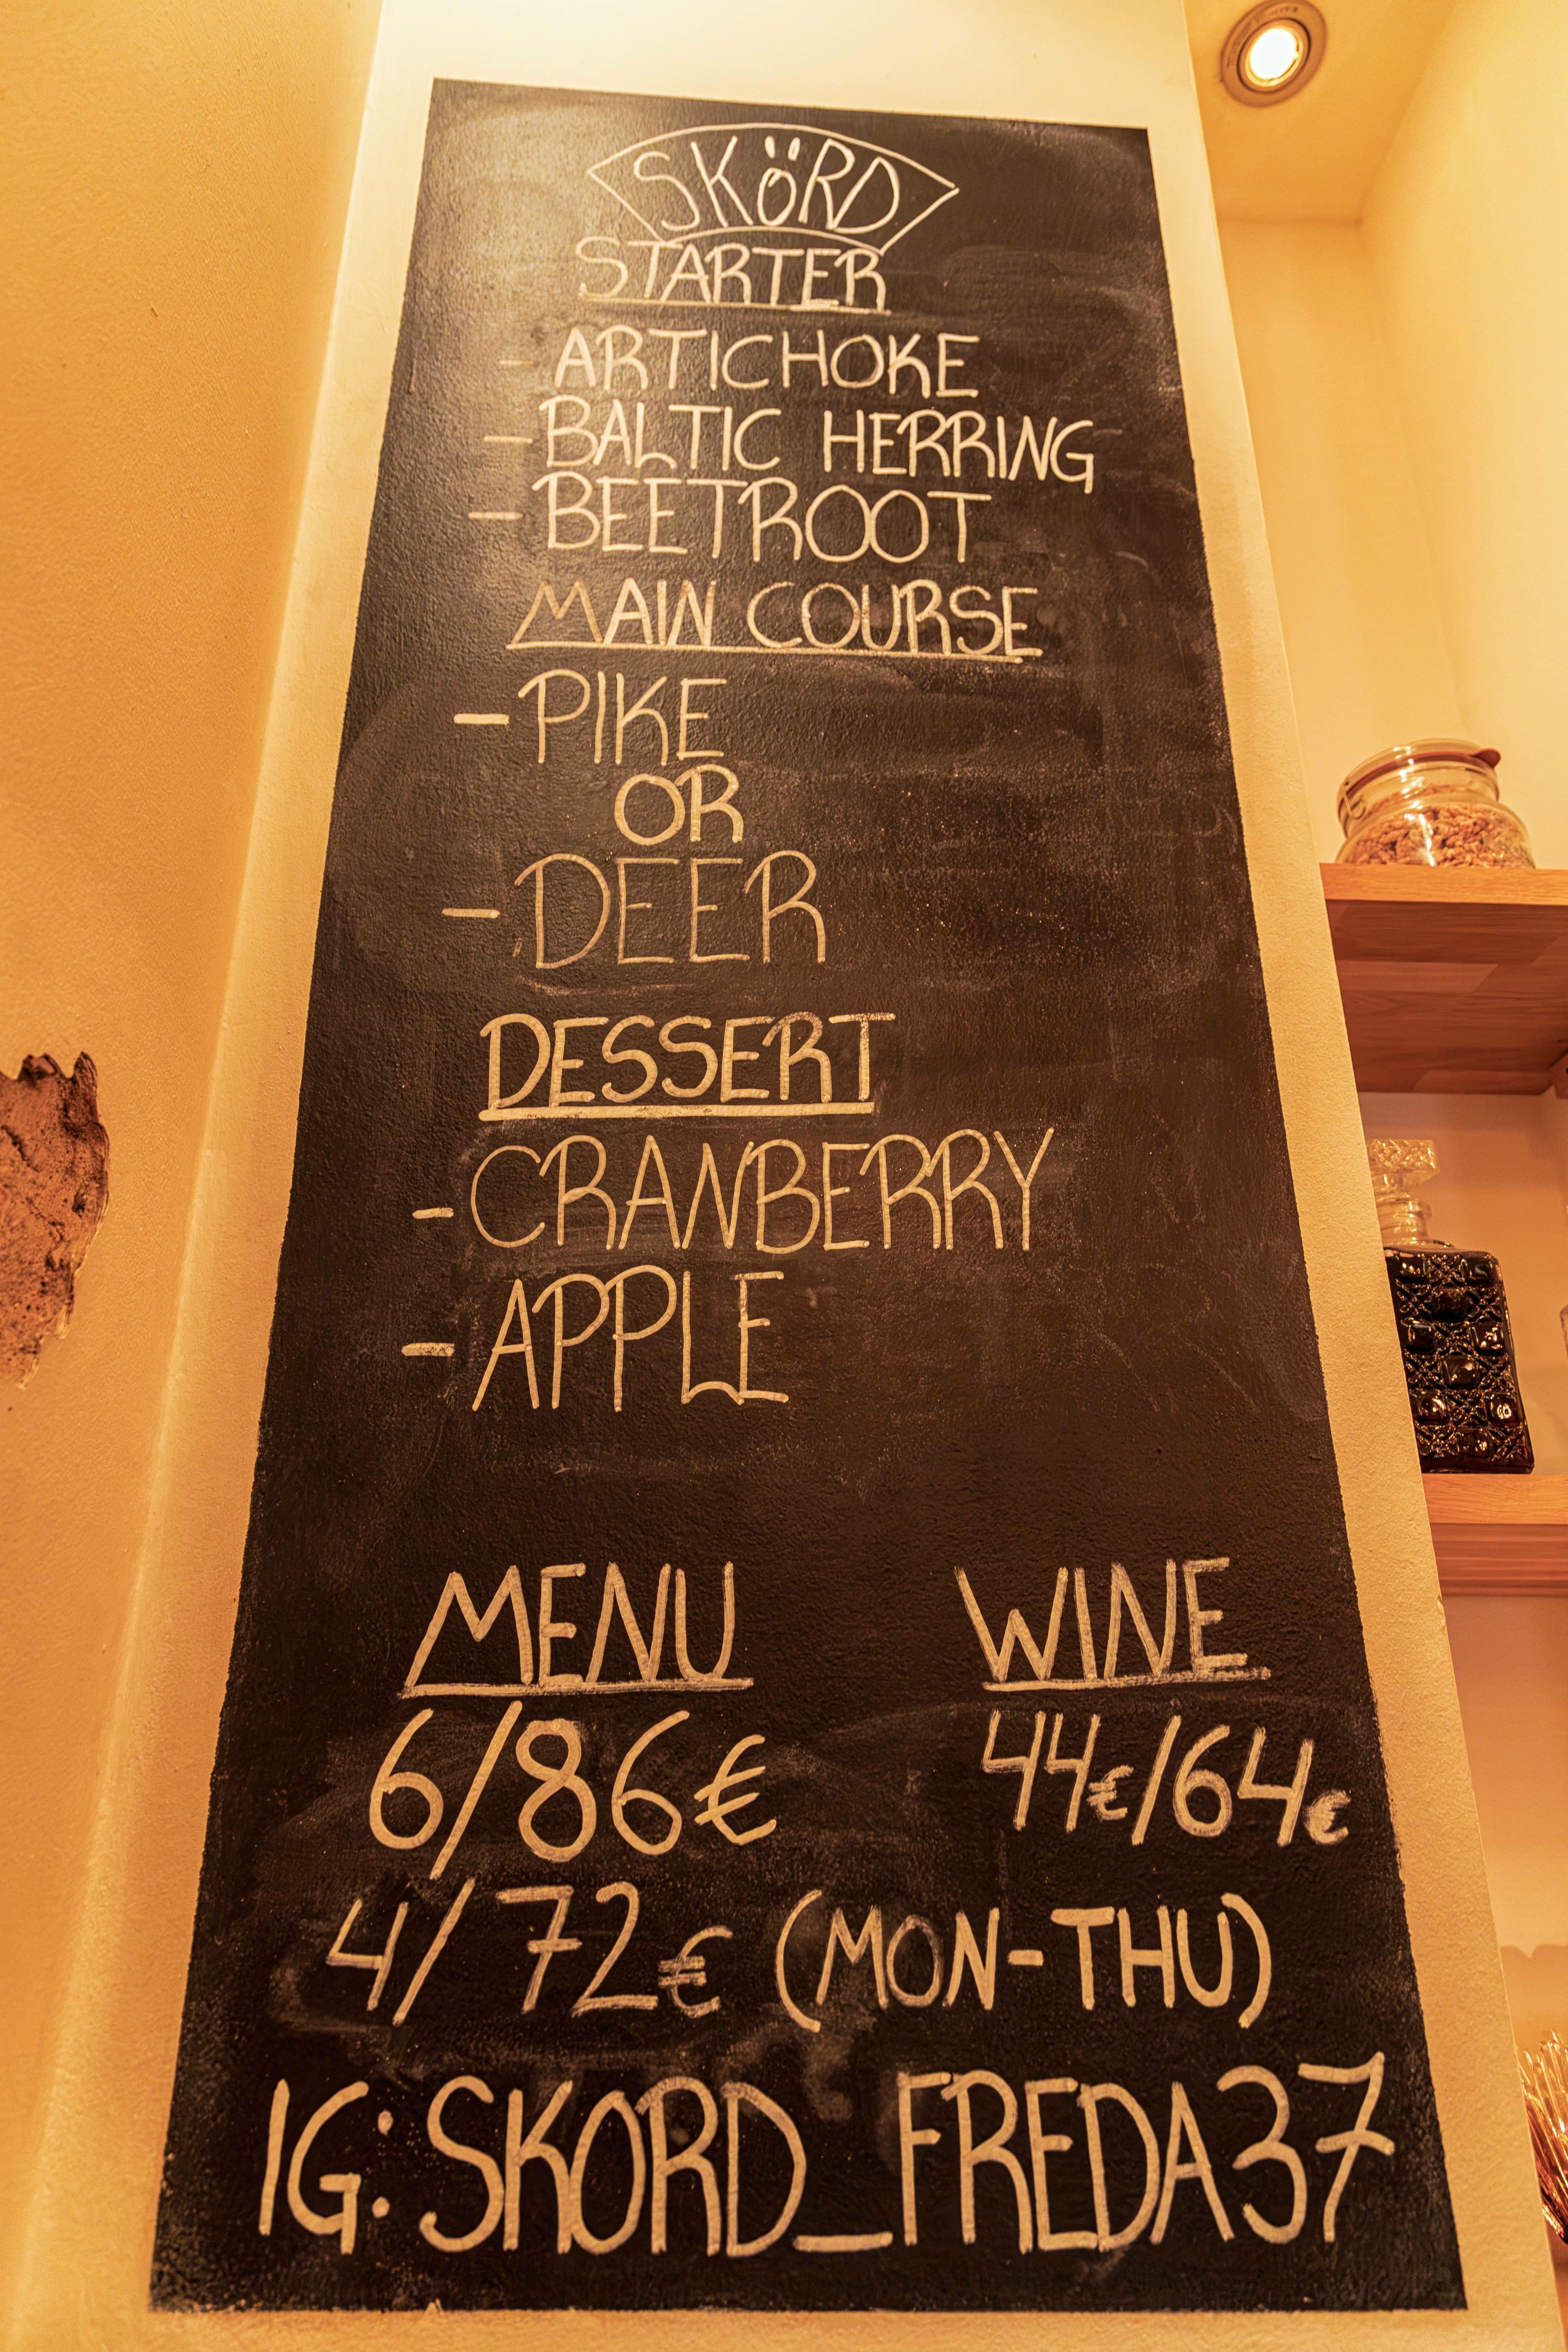 SKÖRD
STARTER
- ARTICHOKE
- BALTIC HERRING
- BEETROOT
MAIN COURSE
- PIKE
OR
- DEER
DESSERT
- CRANBERRY
- APPLE
MENU WINE
6/86€ 44€/64€
4/72€ (MON-THU)
IG: SKORD_FREDA37